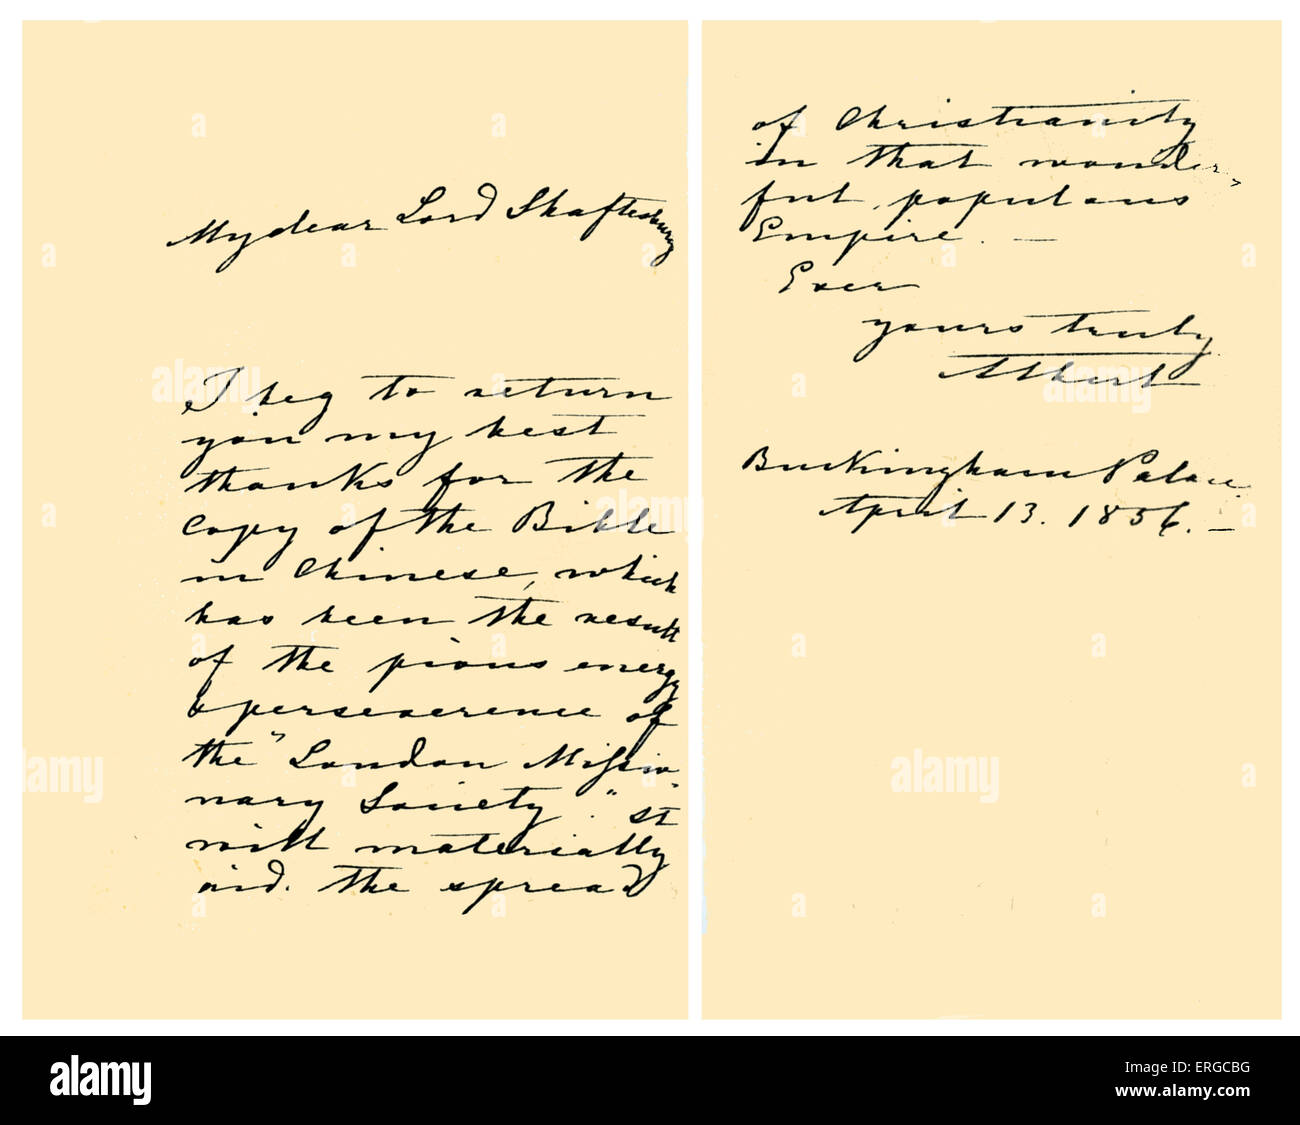 My dear Lord Shaftesbury
I beg to return
you my best
thanks for the
copy of the Bible
in Chinese, which
has been the result
of the pious energy
& perseverence of
the "London Missio-
nary Society." It
will materially
aid. the spread
of Christianity
in that wonder-
ful, populous
Empire. —
Ever
yours truly
Albert
Buckingham Palace.
April 13. 1856. —
alamy
Image ID: ERGCBG
www.alamy.com